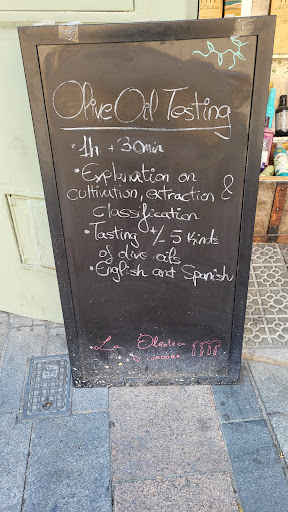 Olive Oil Testing
· 1h + 30min
• Explanation on
cultivation, extraction &
classification
• Tasting +/- 5 kinds
of olive oils
• English and Spanish
La Oleoteca